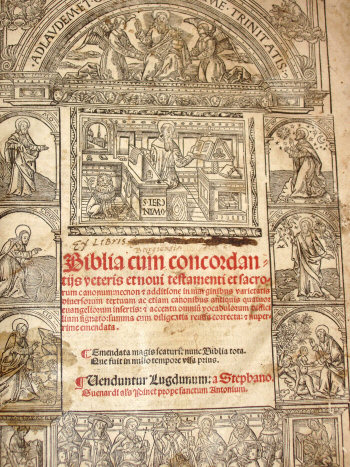 AD LAVDEM ET TRINITATIS
S·IERO
NIMO
EX LIBRIS
Biblia cum concordan-
tijs veteris et noui testamenti et sacro-
rum canonum: necnon et additione in marginibus varietatis
diuersorum textuum: ac etiam canonibus antiquis quatuor
euangeliorum insertis: et accentu omniū vocabulorum
summa cum diligentia reuisa correcta: et
emendata.
¶ Emendata magis scaturit nunc Biblia tota.
Que fuit in nullo tempore visa prius.
¶ Uenduntur Lugdunum: a Stephano
Gueynardi prope sanctum Antonium.